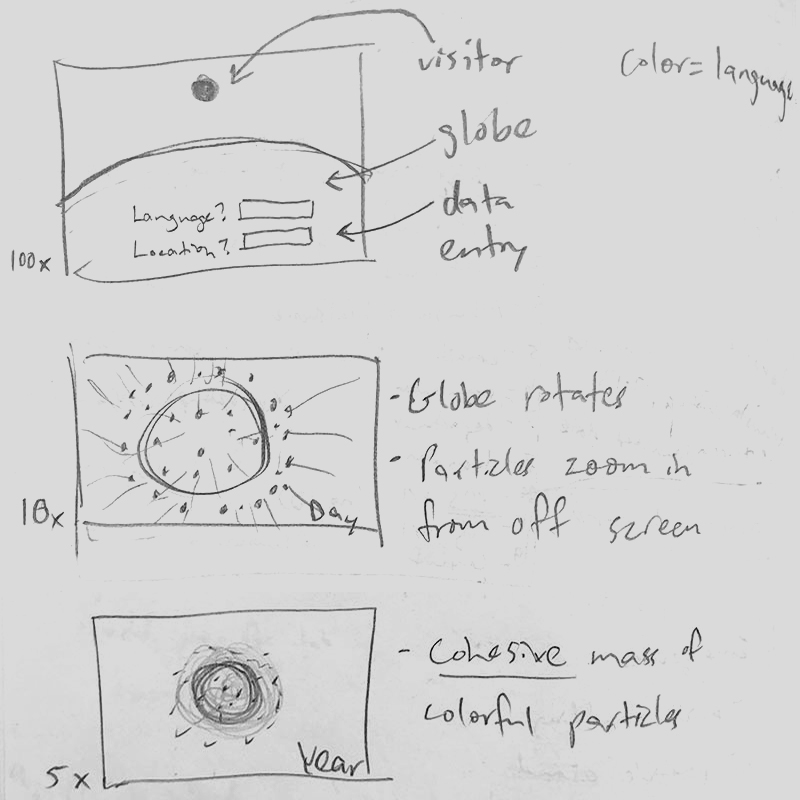 visitor
Color= language
globe
Language?
data
Location?
entry
100x
- Globe rotates
- Particles zoom in
from off screen
Day
10x
- Cohesive mass of
colorful particles
Year
5x